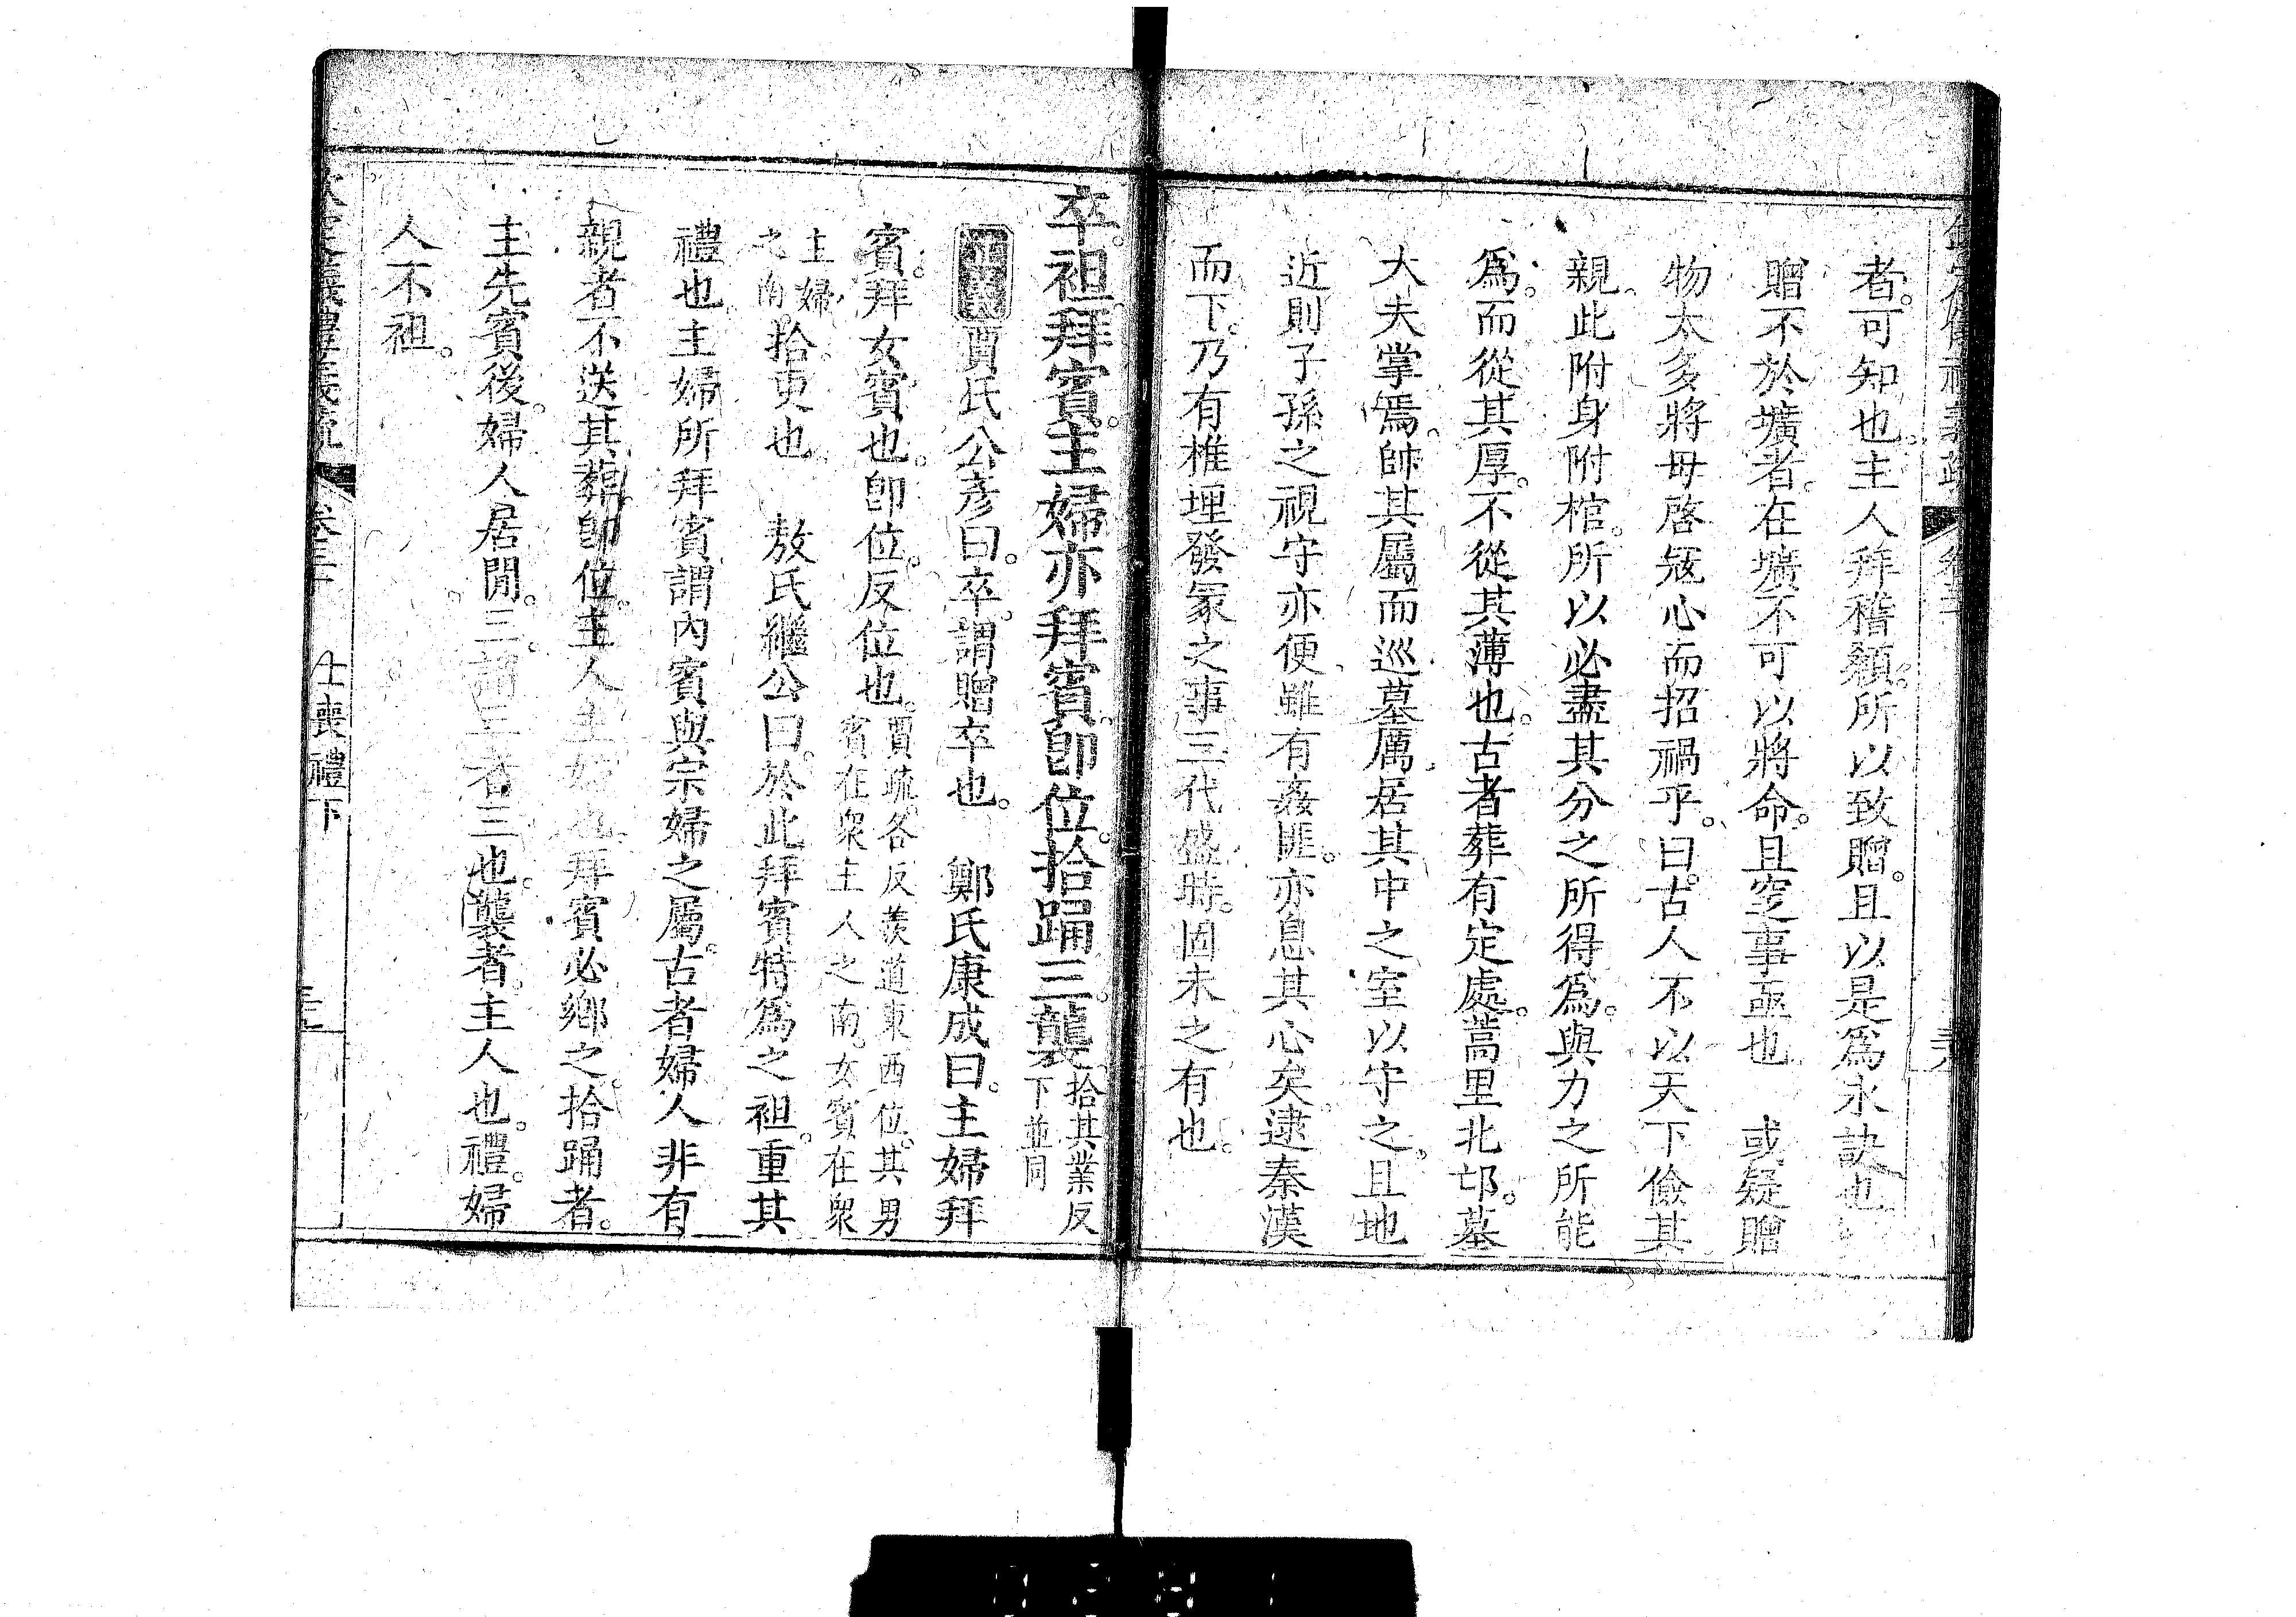 者可知也主人拜稽顙所以致贈且以是爲永訣也
贈不於壙者在壙不可以將命且窆事亟也　或疑贈
物太多將毋啓寇心而招禍乎曰古人不以天下儉其
親此附身附棺所以必盡其分之所得爲與力之所能
爲而從其厚不從其薄也古者葬有定處蒿里北邙墓
大夫掌焉帥其屬而巡墓厲居其中之室以守之且地
近則子孫之視守亦便雖有姦匪亦息其心矣逮秦漢
而下乃有椎埋發冢之事三代盛時固未之有也
卒袒拜賓主婦亦拜賓卽位拾踊三襲拾其業反下並同
賈氏公彥曰卒謂贈卒也　鄭氏康成曰主婦拜
賓拜女賓也卽位反位也賈疏各反羨道東西位其男賓在衆主人之南女賓在衆
主婦之南拾更也　敖氏繼公曰於此拜賓特爲之袒重其
禮也主婦所拜賓謂內賓與宗婦之屬古者婦人非有
親者不送其葬卽位主人主婦也拜賓必鄉之拾踊者
主先賓後婦人居閒三謂三者三也襲者主人也禮婦
人不袒
士喪禮下